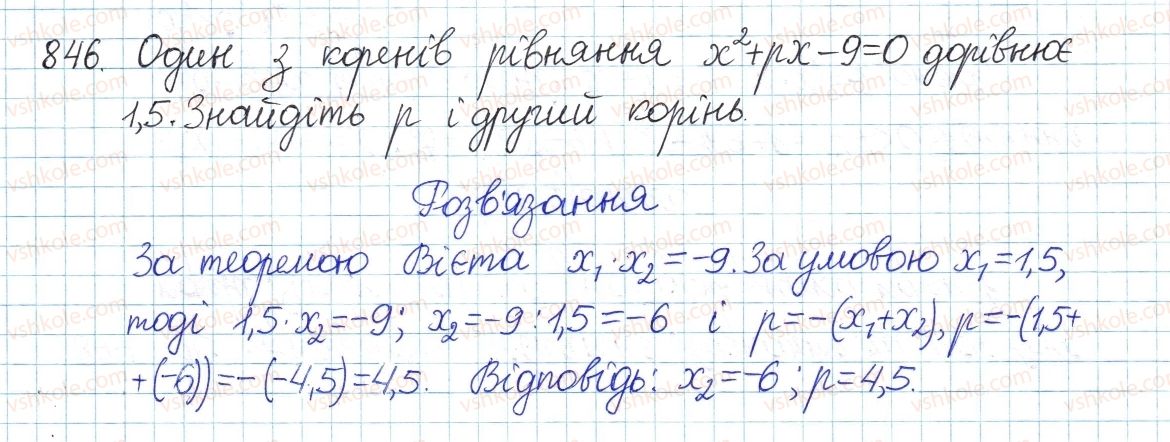 846. Один з коренів рівняння x²+px-9=0 дорівнює
1,5. Знайдіть p і другий корінь.
Розв'язання
За теоремою Вієта x₁·x₂=-9. За умовою x₁=1,5,
тоді 1,5·x₂=-9; x₂=-9:1,5=-6 і p=-(x₁+x₂), p=-(1,5+
+(-6))=-(-4,5)=4,5. Відповідь: x₂=-6; p=4,5.